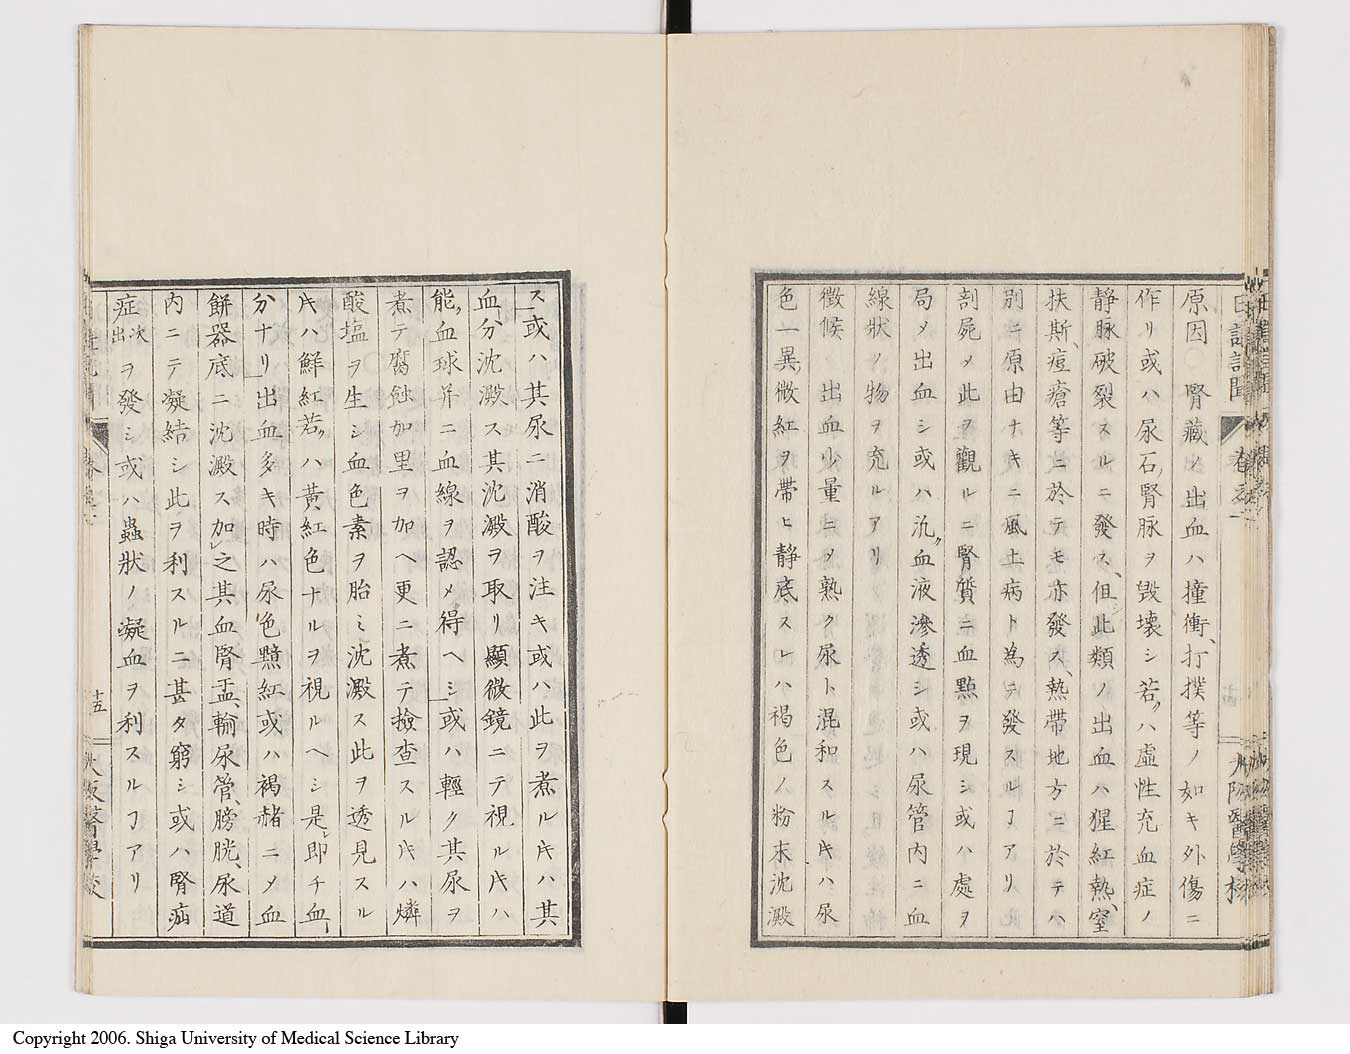 日講記聞 卷之
大阪醫學校
原因○腎藏ノ出血ハ撞衝、打撲等ノ如キ外傷ニ
作リ或ハ尿石、腎脉ヲ毀壞シ若クハ虚性充血症ノ
靜脉破裂スルニ發ス、但此類ノ出血ハ猩紅熱、窒
扶斯、痘瘡等ニ於テモ亦發ス、熱帶地方ニ於テハ
別ニ原由ナキニ風土病ト為テ發スルヿアリ
剖屍〆此ヲ觀ルニ腎質ニ血點ヲ現シ或ハ處ヲ
局〆出血シ或ハ汎ク血液滲透シ或ハ尿管内ニ血
線狀ノ物ヲ充ルアリ
徴候○出血少量ニ〆熟ク尿ト混和スルㇳキハ尿
色一異、微紅ヲ帶ヒ靜底スレハ褐色ノ粉末沈澱
ス或ハ其尿ニ消酸ヲ注キ或ハ此ヲ煮ルㇳキハ其
血分沈澱ス其沈澱ヲ取リ顯微鏡ニテ視ルㇳキハ
能ク血球并ニ血線ヲ認メ得ヘシ或ハ輕ク其尿ヲ
煮テ腐蝕加里ヲ加ヘ更ニ煮テ撿査スルㇳキハ燐
酸塩ヲ生シ血色素ヲ胎ミ沈澱ス此ヲ透見スル
ㇳキハ鮮紅若クハ黄紅色ナルヲ視ルヘシ是レ即チ血
分ナリ出血多キ時ハ尿色黯紅或ハ褐赭ニ〆血
餅器底ニ沈澱ス加之其血腎盂、輸尿管、膀胱、尿道
内ニテ凝結シ此ヲ利スルニ甚タ窮シ或ハ腎疝
症出次ヲ發シ或ハ蟲狀ノ凝血ヲ利スルヿアリ
十五
大阪醫學校